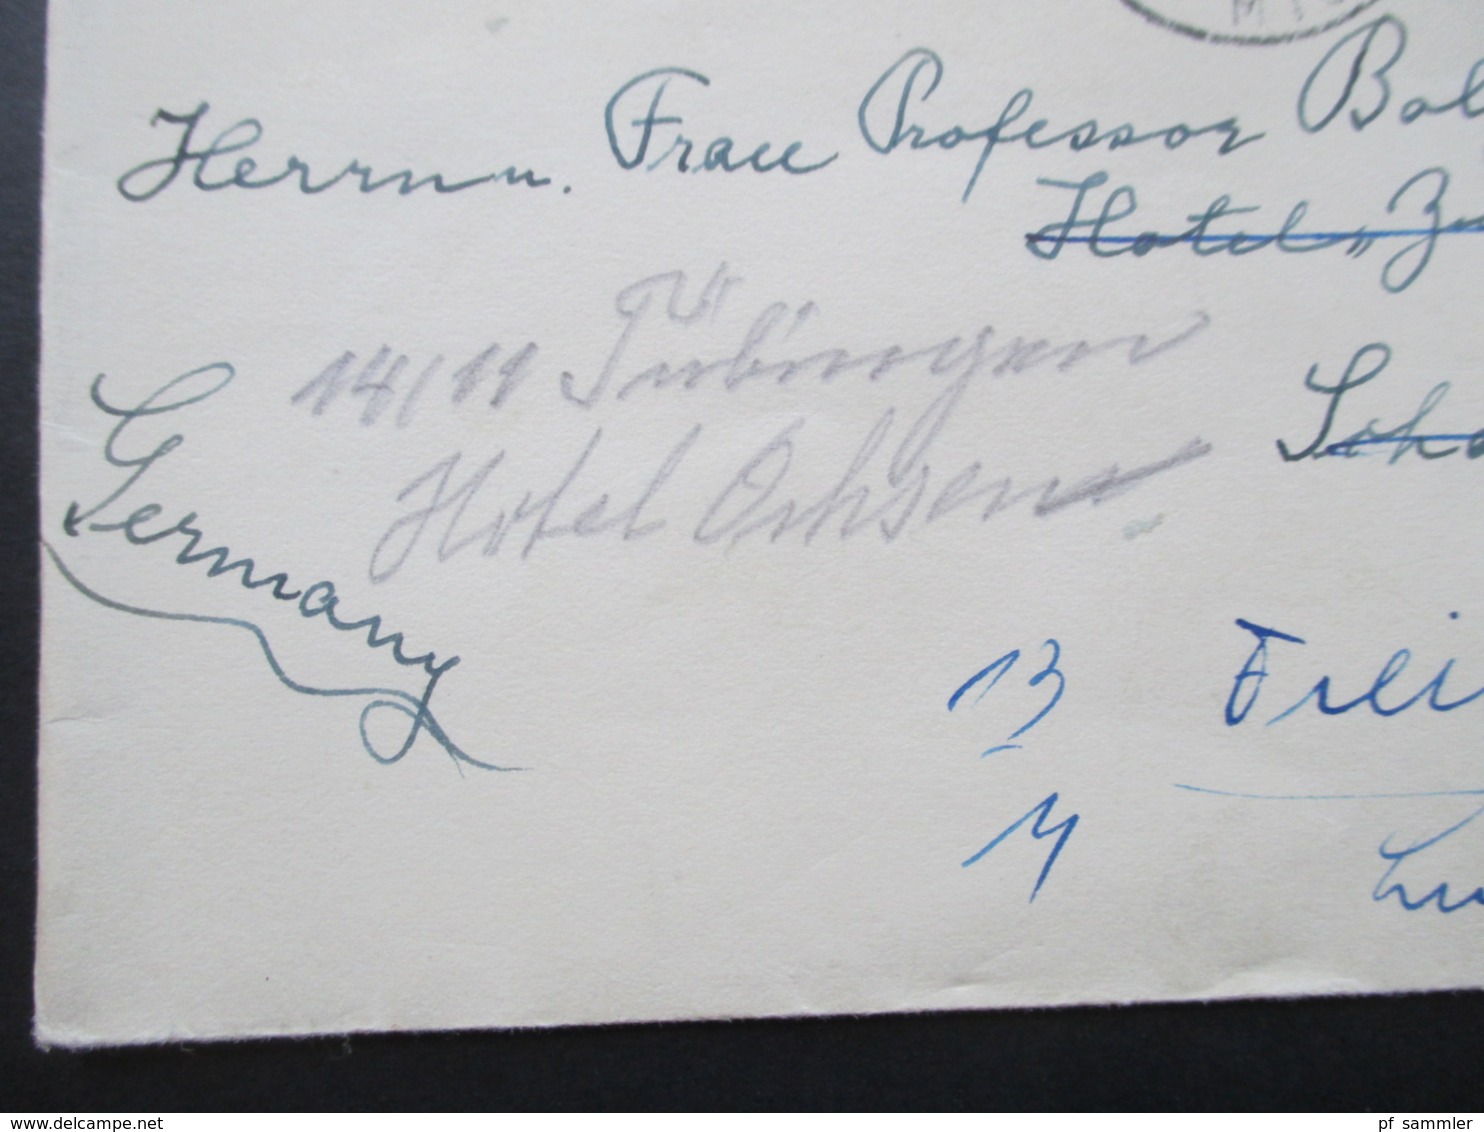 Herrn u. Frau Professor Bol
Hotel "Zu
14/11 Tübingen
Hotel Ochsen
Germany
Scha
13
Frei
delcampe.net
pf_sammler